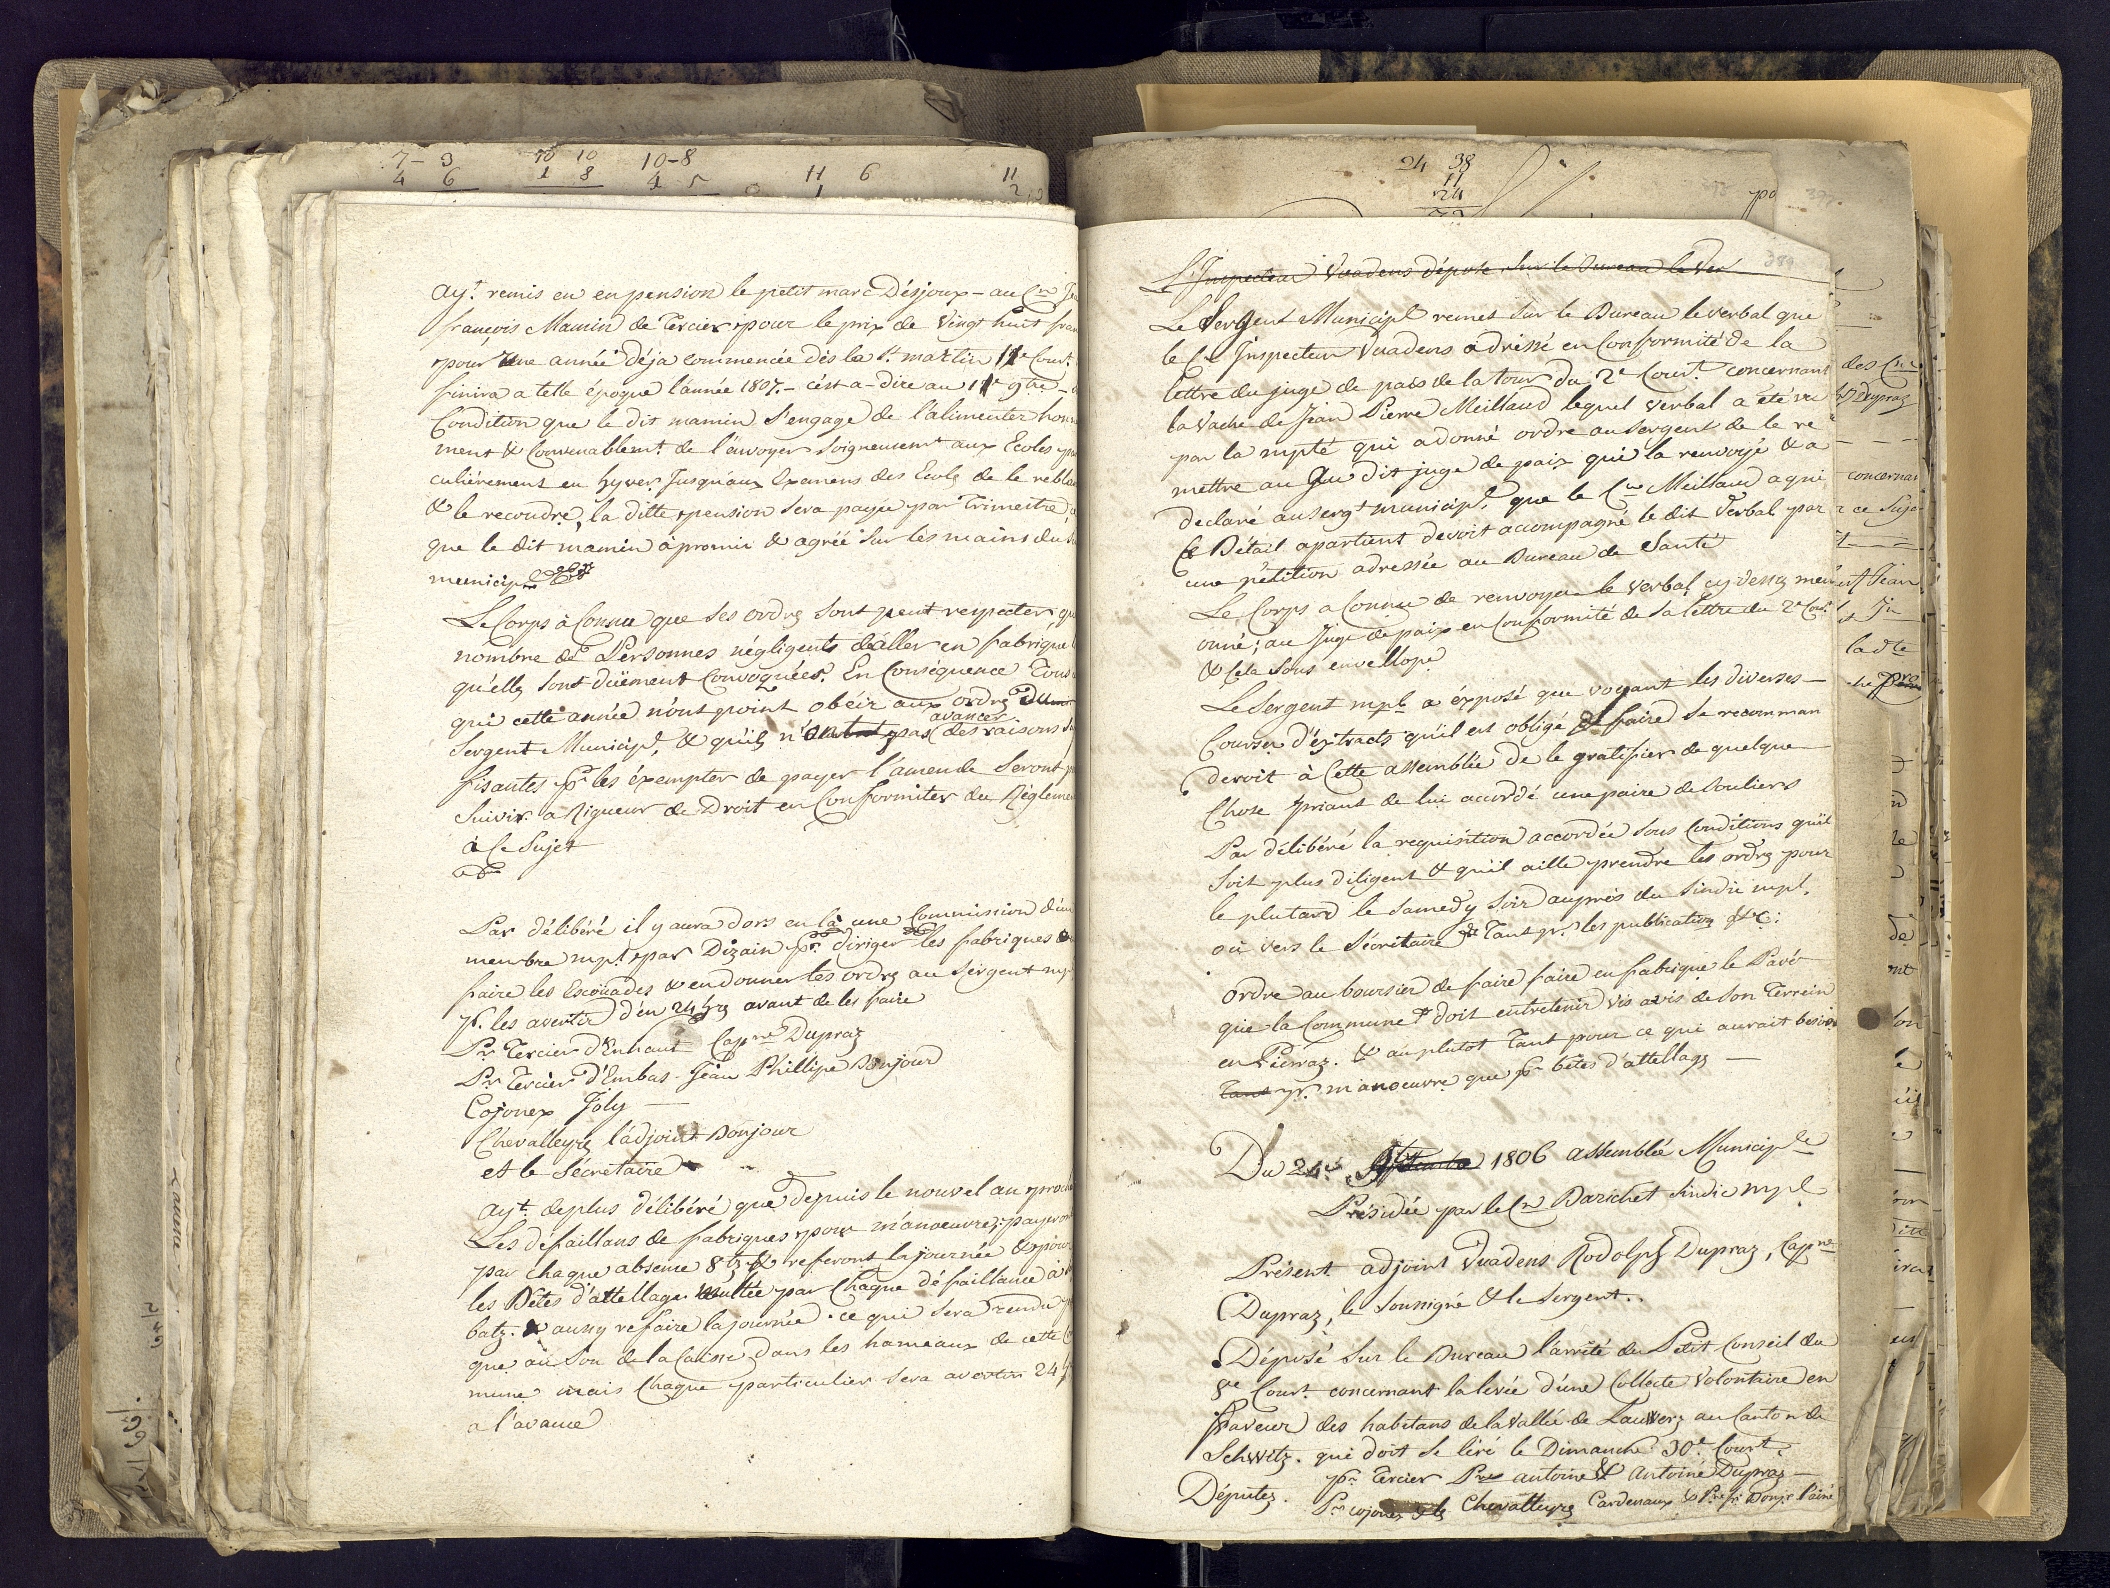 7-3 10 10 10-8 11 6 11
4 6 1 8 4 5 1 2
ayt. remis en en pension le petit marc Désjoux - au Cn
françois Mamin de Tercier, pour le prix de Vingt huit
pour une année déja commencée dès la St. martin 11e Court.
finira a telle époque l'année 1807. - c'ést a-dire au 11e 9bre -
Condition que le dit mamin s'engage de l'alimenter
ment & Convenablemt. de l'énvoyer soigneusemt. aux Ecoles
culiérement en hyver. Jusqu'aux Examens des Ecols de le
& le recoudre, la ditte pension sera payée par Trimestre,
que le dit mamin à promis & agréé Sur les mains du
municipl
Le Corps à Connu que ses ordrs sont peut respecter,
nombre de Personnes négligents d'aller en fabrique
qu'ells sont duëment Convoquées. En Conséquence Tous
qui cette année n'ont point obéir aux ordrs du
avancer
Sergent Municipl, & qu'ils n'ont pas des raisons
fisantes pr les éxempter de payer l'amende Seront
Suivis a Rigueur de Droit en Conformiter du
à Ce Sujet
Par délibéré il y aura dors en là une Commission
membre mpl. par Dizain pr. diriger les fabriques
faire les Escouades & en donner les ordrs au Sergent
pr. les avertir d'en 24 hrs avant de les faire
Pr. Tercier d'Enhaut Capne Dupraz
Pr Tercier d'Embas - Jéan Phillipe Bonjour
Cojonex Joly
Chevalleyre l'adjoint Bonjour
et le Sécretaire
ayt. de plus délibéré que Depuis le nouvel an
Les défaillans de fabriques pour m'anoeuvre; payeront
par chaque absence 8 bz & referont la journée & pour
les Bêtes d'attellage par Chaque défaillance à
batz. & aussy refaire la journée. ce qui sera rendu
que au Son de la Caisse dans les hameaux de cette
mune mais Chaque particulier sera avertir 24
a l'avance
24 38
11
24
389
L'Inspecteur Vuadens dépose Sur le Bureau le Ver
Le Sergent Municipl remet Sur le Bureau le verbal que
le Cn Inspecteur Vuadens adressé en Conformité de la
lettre du juge de paix de la tour du 2e Court. concernant
la Vache de Jean Pierre Meilland lequel Verbal a été vu
par la mpté qui a donné ordre au Sergent de le re
mettre au dit juge de paix qui la renvoyé & a
declaré au sergt municipl, que le Cn Meilland a qui
Ce Bétail apartient devoit accompagné le dit Verbal par
une pétition adressée au Bureau de Santé
Le Corps a Connu de renvoyer le verbal cy dessus
onné; au Juge de paix en Conformité de sa lettre du 2e Court.
& Cela Sous envellope
Le Sergent mpl a éxposé que voyant les diverses -
Courses d'éxtracts qu'il est obligé de faire se recomman
deroit à Cette assemblée de le gratifier de quelque
Chose priant de lui accordé une paire de Souliers
Par délibéré la requisition accordée Sous Conditions qu'il
Soit plus diligent & qu'il aille prendre les ordrs pour
le plutard le Samedy Soir auprès du Sindic mpl,
ou vers le Sécretaire Tant pr. les publications &c:
ordre au boursier de faire faire en fabrique le Pavé
que la Commune doit entretenir vis avis de Son Terrein
en Pierraz. & au plutot Tant pour ce qui aurait besoin
Tant pr. m'anoeuvre que pr bêtes d'attellags -
Du 24e 1806 assemblée Municiple
Présidée par le Cn Barichet Sindic mpl
Présent adjoint Vuadens Rodolph Dupraz, Capne
Dupraz, le Soussigné & le Sergent.
Déposé Sur le Bureau l'arrêté du Petit Conseil du
Court. concernant la levée d'une Collecte Volontaire en
faveur des habitans de la Vallée de Lauwerz au Canton de
Schwitz. qui doit se levé le Dimanche 30e Court.
pr Tercier Pre antoine & Antoine Dupraz -
Députez. Pr cojonex & ls Chevalleyre Cardenaux & Pre fs Bonjr l'ainé
des Cns
Dupraz
concernan
ce Suje
Jean
la dte